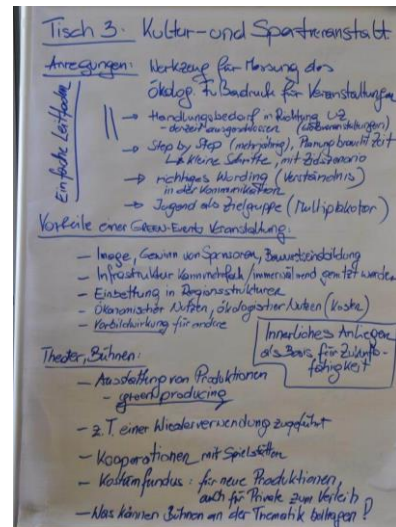 Tisch 3: Kultur- und Sportveranstalt
Anregungen: Werkzeug für Messung des
ökolog. Fußadruck für Veranstaltungen
Einfache Leitfaden
→ Handlungsbedarf in Richtung UZ
- derzeit ausgeschlossen
→ Step by Step (mehrjährig), Planung braucht Zeit
kleine Schritte, mit
→ richtiges Wording (Verständnis)
in der Kommunikation
→ Jugend als Zielgruppe (Multiplikator)
Vorteile einer GREEN-Events Veranstaltung:
- Image, Gewinn von Sponsoren, Bewusstseinsbildung
- Infrastruktur kann genutzt werden
- Einbettung in Regionsstrukturen
- Ökonomischer Nutzen, ökologischer Nutzen (Kosten)
- Vorbildwirkung für andere
Innerliches Anliegen
als Basis für Zukunfts-
fähigkeit
Theater, Bühnen:
- Ausstattung von Produktionen
- green producing
- z.T. einer Wiederverwendung zugeführt
- Kooperationen mit Spielstätten
- Kostümfundus: für neue Produktionen,
auch für Private zum Verleih
- Was können Bühnen an der Thematik beitragen?